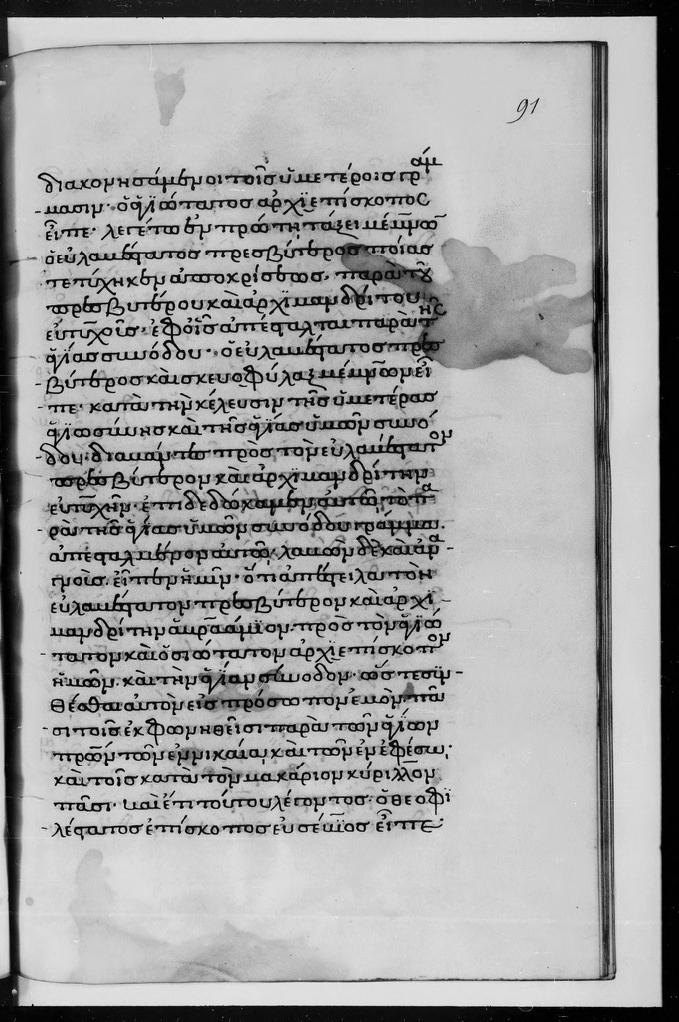 91
διακονησάμενοι τοῖς ὑμετέροις γράμ
μασιν. ὁ ἁγιώτατος ἀρχιεπίσκοπος
εἶπε. λεγέτω ἐν πρώτη τάξει μέμνων
ὁ εὐλαβέστατος πρεσβύτερος ποίας
τετύχηκεν ἀποκρίσεως, παρὰ τοῦ
πρεσβυτέρου καὶ ἀρχιμανδρίτου
εὐτυχοῦς. ἐφ' οἷς ἀπέσταλται παρὰ τῆς
ἁγίας συνόδου. ὁ εὐλαβέστατος πρεσ
βύτερος καὶ σκευοφύλαξ μέμνων εἶ
πε. κατὰ τὴν κέλευσιν τῆς ὑμετέρας
ἁγιωσύνης καὶ τῆς ἁγίας ὑμῶν συνό
δου. διαβάντες πρὸς τὸν εὐλαβέστατον
πρεσβύτερον καὶ ἀρχιμανδρίτην
εὐτυχῆν. ἐπιδεδώκαμεν αὐτῶ τὸ πα
ρὰ τῆς ἁγίας ὑμῶν συνόδου γράμμα.
ἀπεσταλμένον αὐτῶ. λαβὼν δὲ καὶ ἀνα
γνοὺς. εἶπεν ἡμῖν. ὅτι ἀπέστειλα τὸν
εὐλαβέστατον πρεσβύτερον καὶ ἀρχι
μανδρίτην ἀβραάμιον. πρὸς τὸν ἁγιώ
τατον καὶ ὁσιώτατον ἀρχιεπίσκοπον
ἡμῶν. καὶ τὴν ἁγίαν σύνοδον. ὥστε συν
θέσθαι αὐτὸν εἰς πρόσωπον ἐμὸν πᾶ
σι τοῖς ἐκφωνηθεῖσι παρὰ τῶν ἁγίων
πρων τῶν ἐν νικαία, καὶ τῶν ἐν ἐφέσω.
καὶ τοῖς κατὰ τὸν μακάριον κύριλλον
πᾶσι. καὶ ἔτι τούτου λέγοντος. ὁ θεοφι
λέστατος ἐπίσκοπος εὐσέβιος εἶπε.